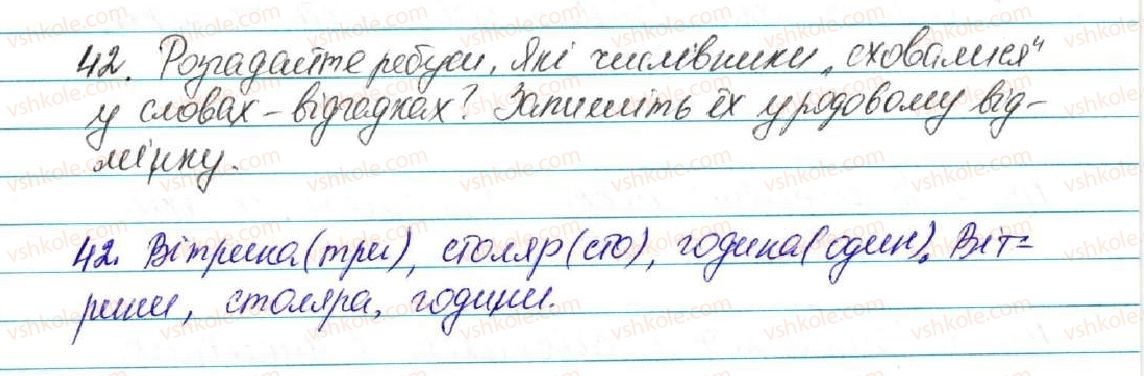 42. Розгадайте ребуси. Які числівники „сховалися"
у словах-відгадках? Запишіть їх у родовому від-
мінку.
42. Вітрина (три), столяр (сто), година (один). Віт=
рини, столяра, години.